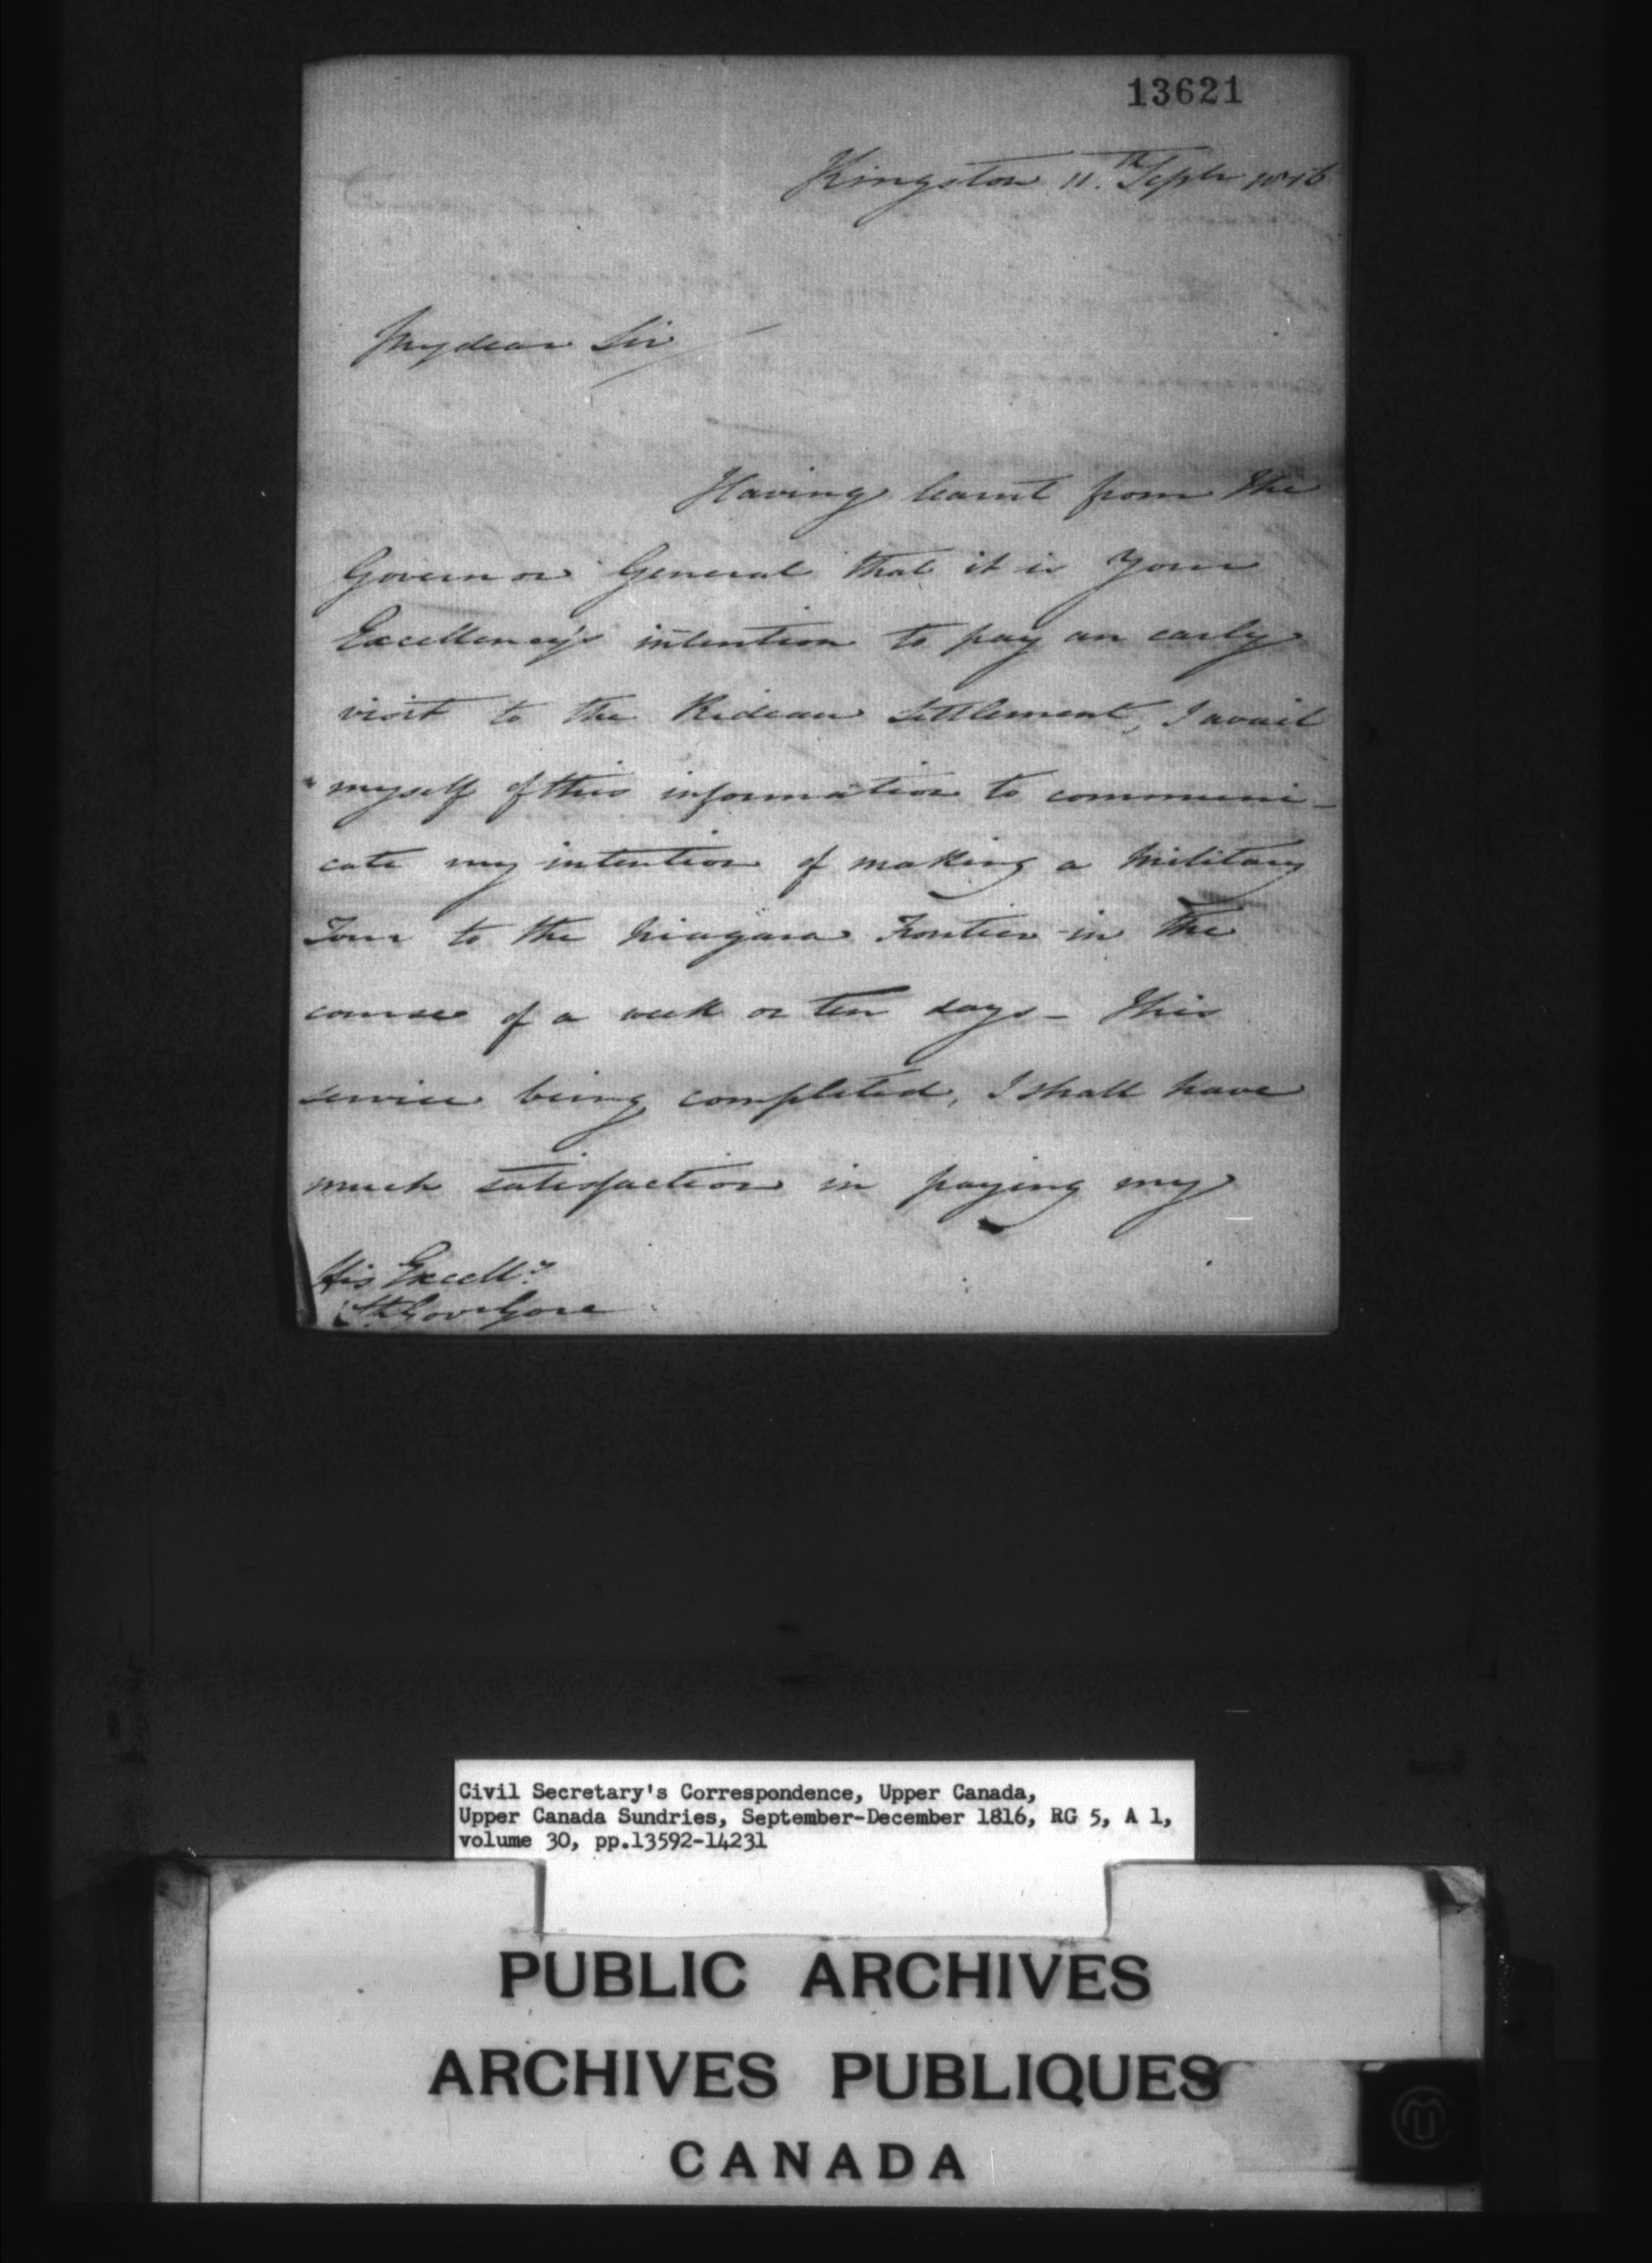 13621
Kingston 11.th Septr 1816
My dear Sir
Having learnt from the
Governor General that it is Your
Excellency's intention to pay an early
visit to the Rideau Settlement, I avail
myself of this information to communi-
cate my intention of making a Military
Tour to the Niagara Frontier in the
course of a week or ten days - This
service being completed, I shall have
much satisfaction in paying my
His Excelly
Lt Govr Gore
Civil Secretary's Correspondence, Upper Canada,
Upper Canada Sundries, September-December 1816, RG 5, A 1,
volume 30, pp.13592-14231
PUBLIC ARCHIVES
ARCHIVES PUBLIQUES
CANADA